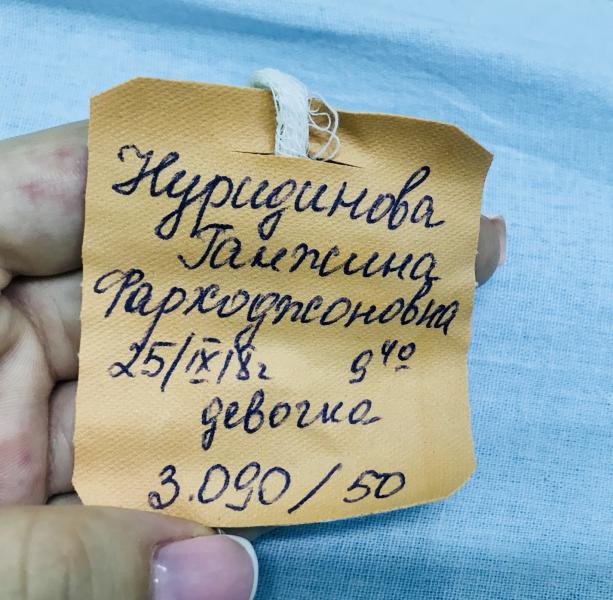 Нуридинова
Ганжина
Фарходжоновна
25/IX 18г 9 40
девочка
3.090/50